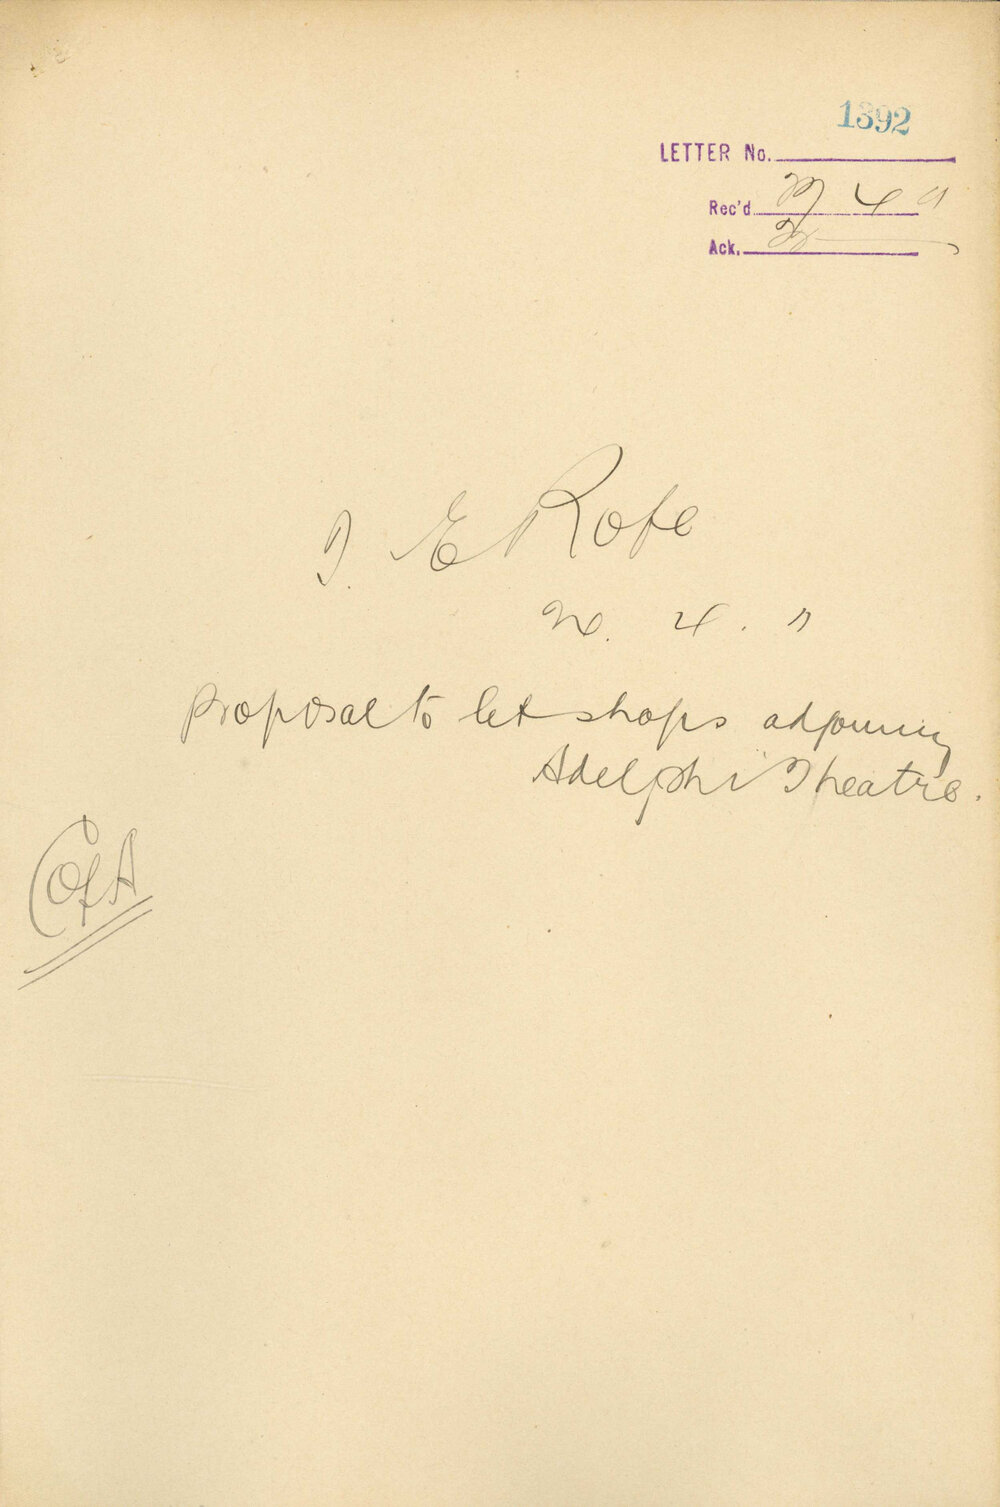 1392
LETTER No.
Rec'd 4 11
Ack.
T. E Rofe
4. 11
Proposal to let shops adjoining
Adelphi Theatre.
C of A